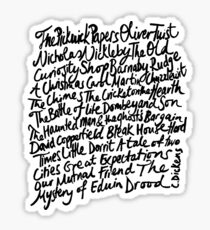 The Pickwick Papers Oliver Twist
Nicholas Nickleby The Old
Curiosity Shop Barnaby Rudge
A Christmas Carol Martin Chuzzlewit
The Chimes The Cricket on the Hearth
The Battle of Life Dombey and Son
The Haunted man & the Ghosts Bargain
David Copperfield Bleak House Hard
Times Little Dorrit A tale of two
Cities Great Expectations
Our Mutual Friend The
Mystery of Edwin Drood
C. Dickens